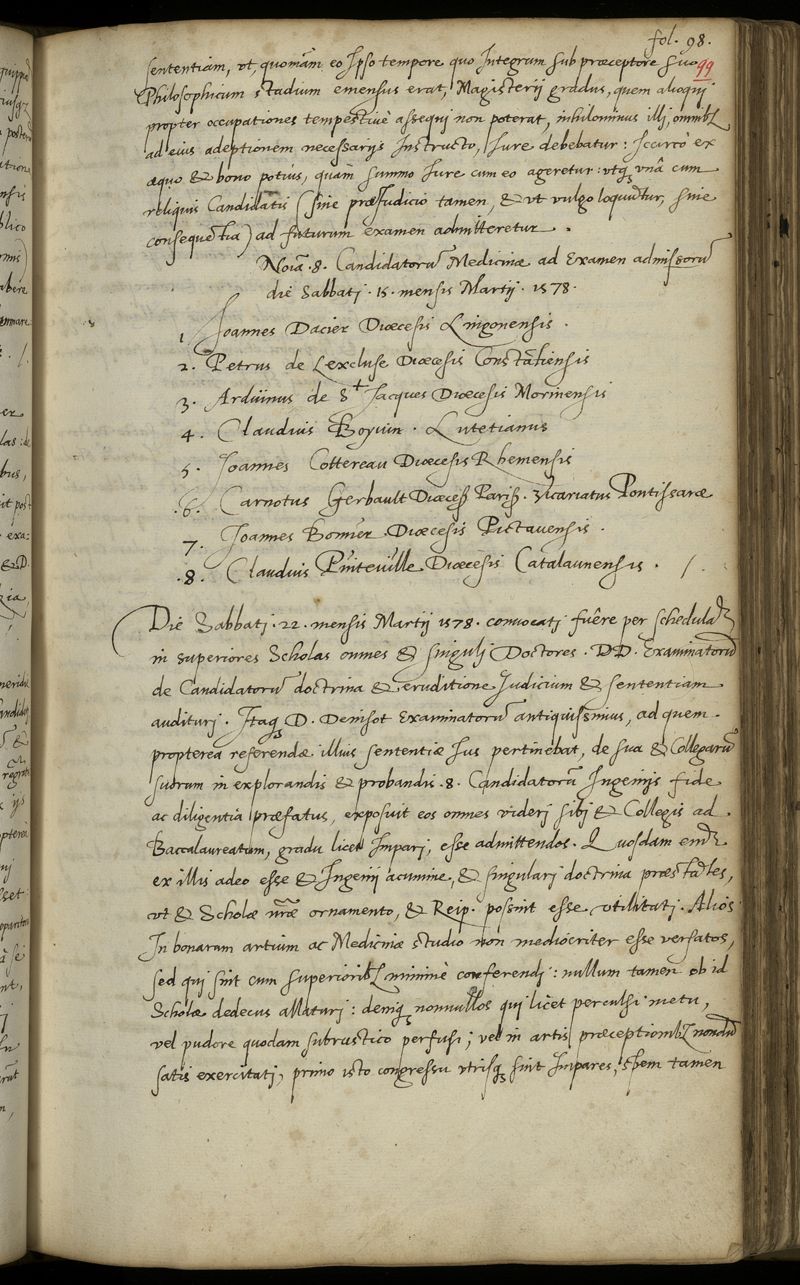 fol. 98.
99
sententiam, vt, quoniam eo Ipso tempore quo Integrum sub præceptore suo
Philosophicum stadium emensus erat, Magisterij gradus, quem alioqui
propter occupationes tempestiuè assequi non poterat, nihilominus illi, omnibꝫ
ad eius adeptionem necessarijs Instructo, Iure debebatur: Iccircò ex
æquo & bono potius, quàm summo Iure cum eo ageretur: vtqꝫ vnâ cum
reliquis Candidatis (sine præIudicio tamen, & vt vulgo loquūtur, sine
consequētia) ad futurum examen admitteretur.
Noīa .8. Candidatorū Medicinæ ad Examen admissorū
die Sabbati .15. mensis Martij . 1578.
1 Joannes Dacier Diœcesis Lingonensis .
2. Petrus de Lexcluse Diœcesis Constātiensis
3. Arduinus de St Jacques Diœcesis Morinensis
4. Claudius Boyuin . Lutetianus
5. Joannes Cottereau Diœcesis Rhemensis
.6. Carnotus Gerbault Diœces̄ Paris̄. Vicariatus Pontissaræ
7. Joannes Bomier Diœcesis Pictauensis .
.8. Claudius Puiteuille Diœcesis Catalaunensis . /.
Die Sabbati .22. mensis Martij 1578. conuocati fuêre per schedulā
in superiores Scholas omnes & singuli Doctores . DD. Examinatorū
de Candidatorū doctrina & eruditione Iudicium & sententiam
audituri . Itaqꝫ D. Denisot Examinatorū antiquissimus, ad quem
propterea referendæ illius sententiæ Ius pertinebat, de sua & Collegarū
suorum in explorandis & probandis .8. Candidatorū Ingenijs fide
ac diligentia præfatus, exposuit eos omnes videri sibi & Collegis ad
Baccalaureatum, gradu licet Impari, esse admittendos. Quosdam enī
ex illis adeo esse & Ingenij acumine, & singulari doctrina præstātes,
vt & Scholæ nr̄æ ornamento, & Reip. possint esse vtilitati. Alios
In bonarum artium ac Medicinæ studio non mediocriter esse versatos,
sed qui sint cum superioribꝫ minimè conferendi: nullum tamen ob id
Scholæ dedecus allaturi: deniqꝫ nonnullos qui licet perculsi metu,
vel pudore quodam subrustico perfusi; vel in artis præceptionibꝫ nondū
satis exercitati, primo isto congressu vtrisqꝫ sint Impares, spem tamen